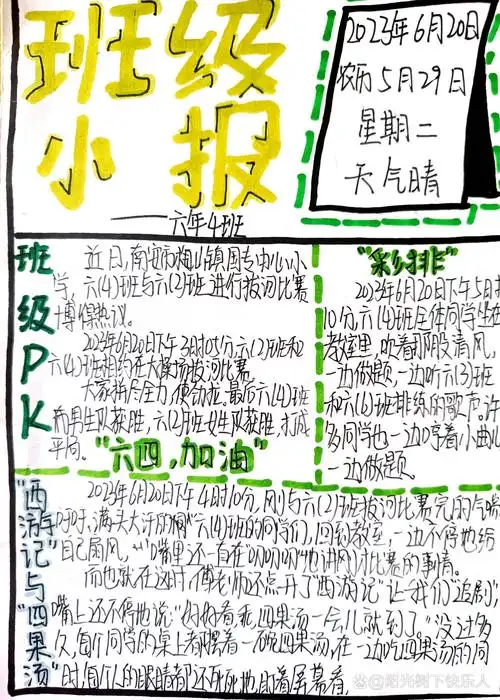 班级
小报
——六年4班
2023年6月20日
农历5月29日
星期二
天气晴
班级PK
近日,南安市梅山镇国专中心小
学,六(4)班与六(2)班进行拔河比赛
博得热议。
2023年6月20日下午3时05分,六(2)班和
六(4)班相约在大操场拔河比赛
大家将尽全力,使劲拉,最后六(4)班
而男生队获胜,六(2)班女生队获胜,打成
平局。
"六四,加油"
"彩排"
2023年6月20日下午5时
10分,六(4)班全体同学坐在
教室里,吹着阵阵清风,
一边做题,一边听六(3)班
和六(6)班排练的歌声,许
多同学也一边哼着小曲儿
一边做题。
"西游记"与"四果汤"
2023年6月20日下午4时10分,刚与六(2)班拔河比赛完的气喘
吁吁,满头大汗的"六(4)班的同学们,回到教室,一边不停地给
自己扇风,一口嘴里还一直在叨叨叨叨地讲刚才比赛的事情。
而也就在这时傅老师还点开了"西游记"让我们"追剧",
嘴上还不停地说:"好好看乖,四果汤一会儿就到了。"没过多
久,每个同学的桌上都摆着一碗四果汤,在一边吃四果汤的同
时,每个人的眼睛都还死死地盯着屏幕看
@阳光树下快乐人